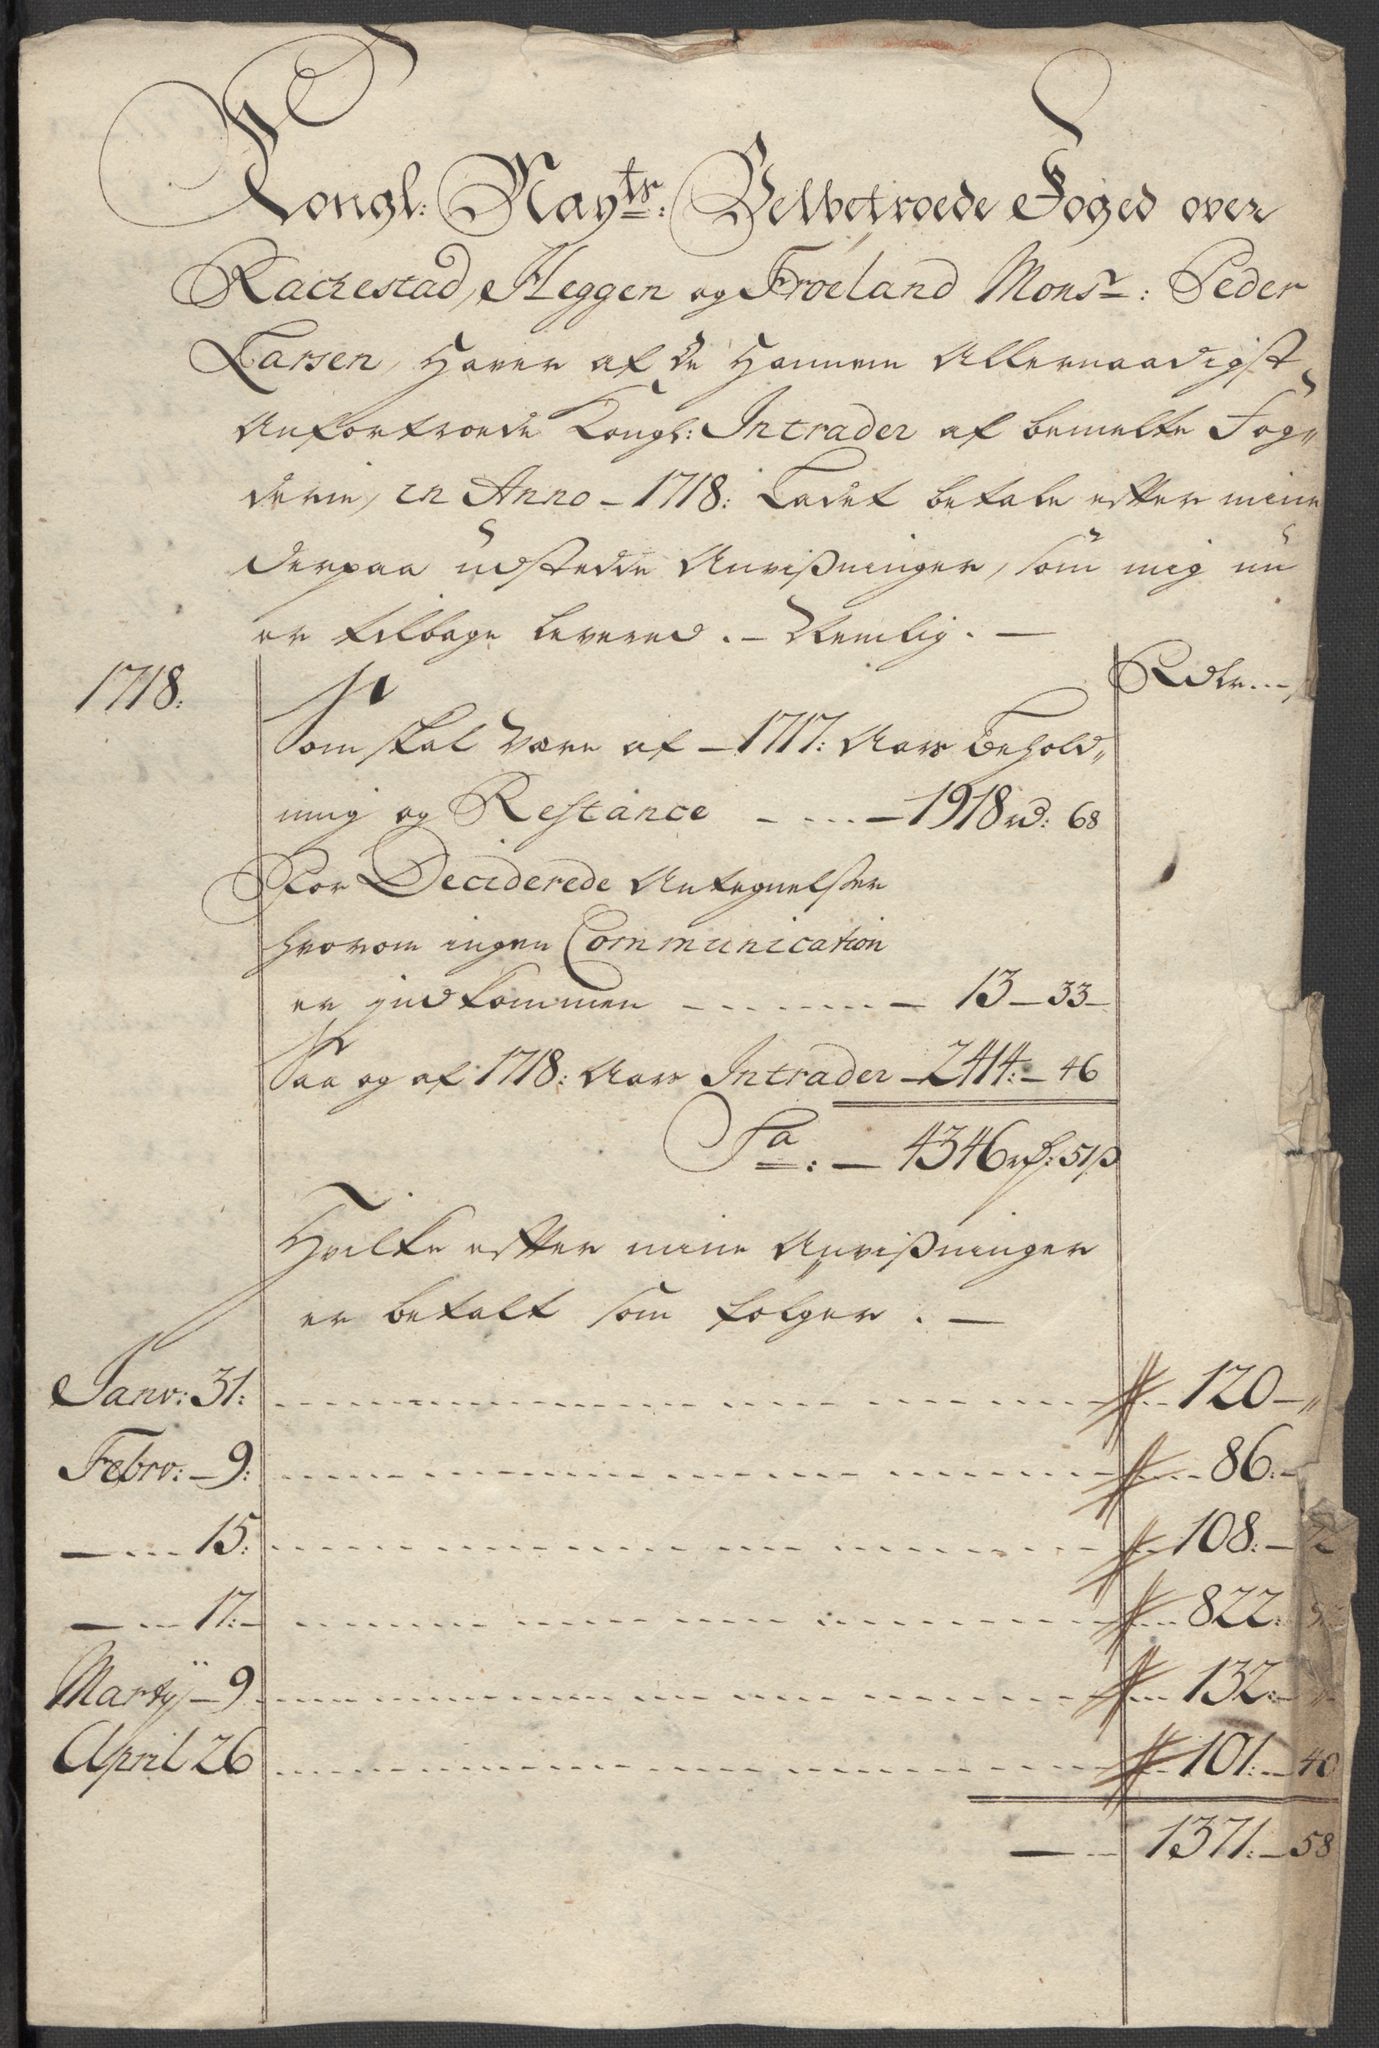 Kongl: Mayts: Velbetroede Foged over
Rachestad, Heggen og Frøeland Monsr: Peder
Larsen, Haver af de Hannem Allernaadigst
Anfortroede Kongl: Intrader af bemelte Fog„
derie, in Anno – 1718: Ladet betale efter mine
derpaa udstedde Anvißninger, som mig nu
er tilbage levered. – Nemlig. –
1718: Rdlr...
Som skal være af – 1717: Aars Behold„
ning og Restance – ... – 1918 rd: 68
For Deciderede Antegnelser
hvorom ingen Communication
er indkommen – – – – 13 – 33 –
Saa og af 1718: Aars Intrader – 2414: – 46
Sa: – 4346 rd: 51 ß
Hvilke efter mine Anvißninger
er betalt som følger. –
Janv: 31: – – – – 120 – „
Febrv: – 9: – – – – 86: –
– – 15: – – – – 108: –
– – 17: – – – – 822:
Martij – 9 – – – – 132: –
April 26 – – – – 101: – 40
– – 1371: – 58